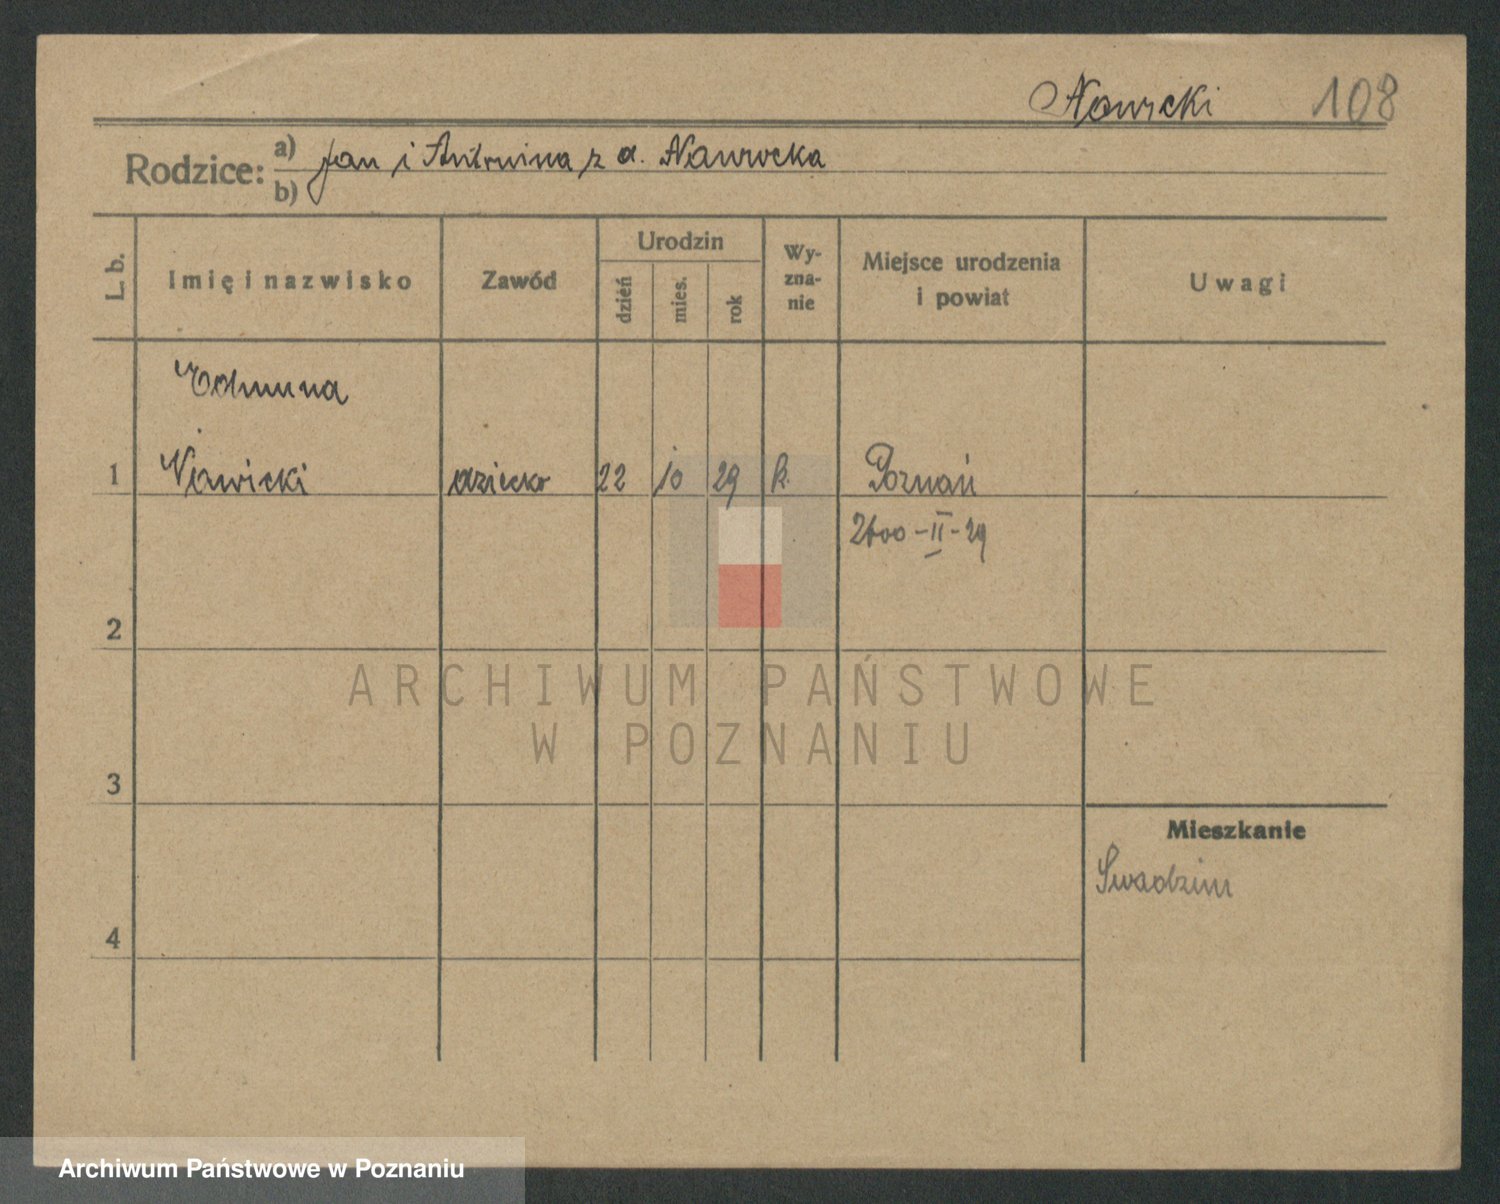 Nawicki 108
Rodzice: a) Jan i Antonina z d. Nawrocka
b)
L. b. Imię i nazwisko Zawód Urodzin dzień mies. rok Wyznanie Miejsce urodzenia i powiat Uwagi
Edmund
1 Nawicki dziecko 22 10 29 k. Poznań
2600-II-29
2
3
Mieszkanie
Swadzim
4
ARCHIWUM PAŃSTWOWE
W POZNANIU
Archiwum Państwowe w Poznaniu